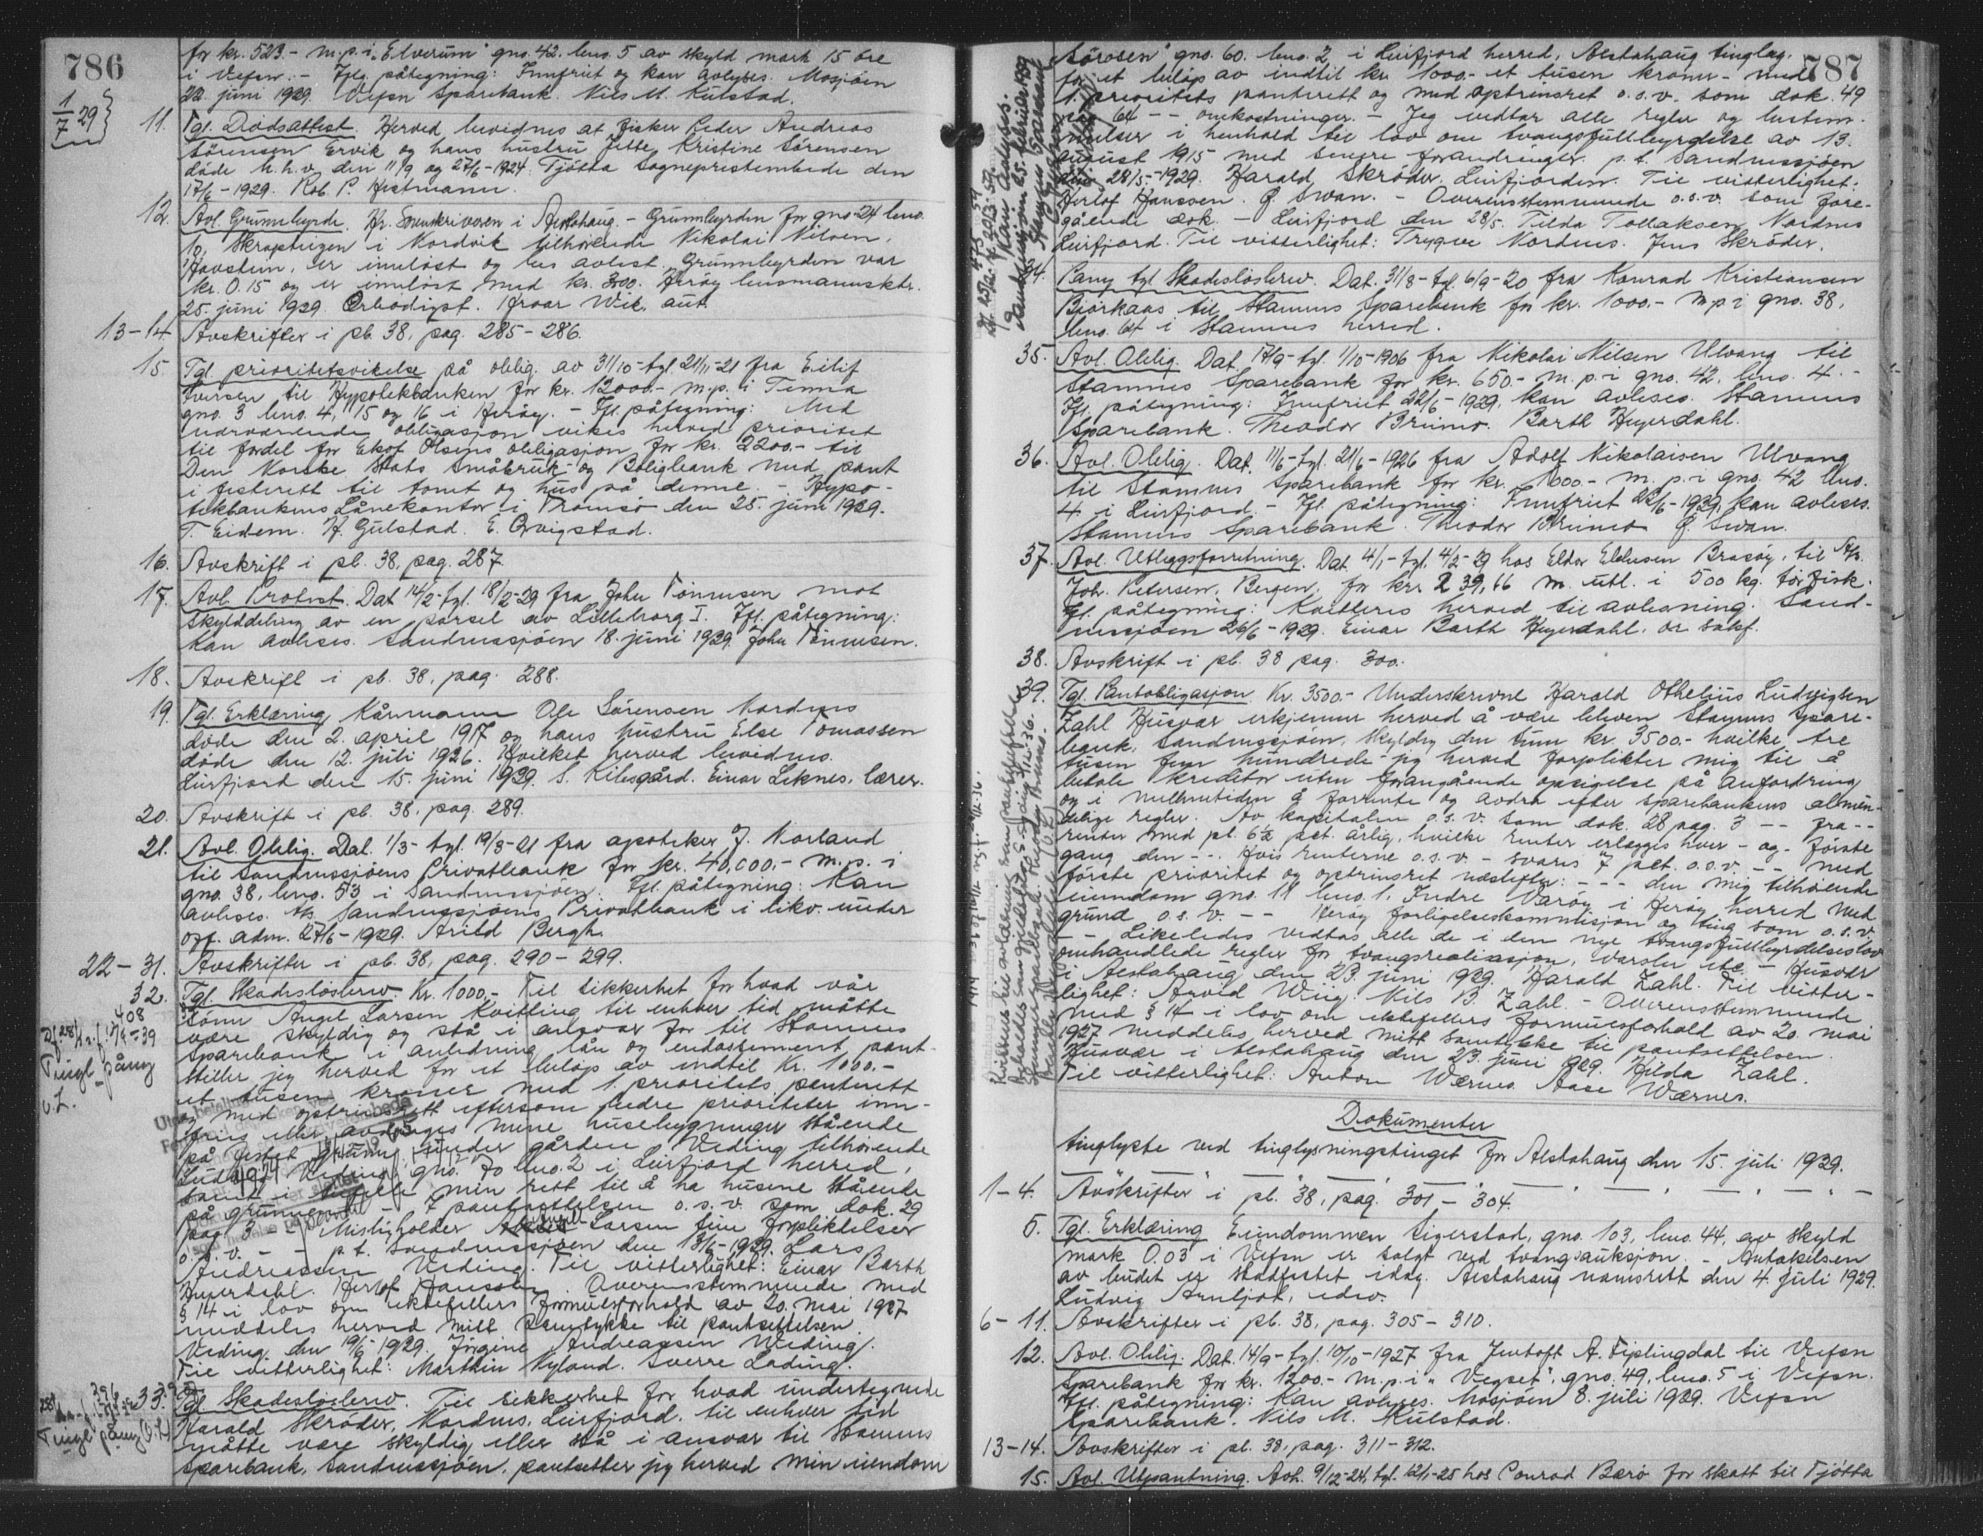 786
1/7 29
for kr. 523.- m.p.i. "Elverum" gno. 42. bno. 5 av skyld mark 15 øre
i Vefsn. - Tgl. påtegning: Innfriet og kan avlyses. Mosjøen
22 juni 1929. Vefsn Sparebank. Nils M. Kulstad.
11. Tgl. Dødsattest. Herved bevidnes at fisker Peder Andreas
Sørensen Ervik og hans hustru Jette Kristine Sørensen
døde h.h.v. den 11/9 og 27/6-1924. Tjøtta Sogneprestembede den
17/6-1929. Rob. P. Hestmann.
12. Avl. Grunnbyrde. Hr. Sorenskriveren i Alstahaug. - Grunnbyrden for gno 24 bno.
i Nordvik tilhørende Nikolai Nilsen,
Havstein, er innløst og bes avlest. Grunnbyrden var
kr. 0.15 og er innløst med kr. 3.00. Herøy lensmannsktr.
25. juni 1929. Ærbødigst. Hroar Wik, aut.
13-14. Avskrifter i pb. 38, pag. 285-286.
15. Tgl. prioritetsvikelse på oblig. av 31/10-tgl. 21/11-21 fra Eilif
Iversen til Hypotekbanken for kr. 12000.- m.p. i Tenna
gno. 3 bno. 4, 15 og 16 i Herøy. - Tgl. påtegning: Med
nærværende obligasjon vikes herved prioritet
til fordel for Olsens obligasjon for kr. 2200.- til
Den Norske Stats Småbruk- og Boligbank med pant
i festerett til tomt og hus på denne. - Hypo-
tekbankens Lånekontor i Tromsø den 25. juni 1929.
T. Eidem. H. Gulstad. E. Qvigstad.
16. Avskrift i pb. 38, pag. 287.
17. Avl. Protest. Dat 14/2-tgl. 18/2-29 fra John Tønnesen mot
skylddeling av en parsel av Lilleborg I. Tgl. påtegning:
Kan avleses. Sandnessjøen 18. juni 1929. John Tønnesen.
18. Avskrift i pb. 38, pag. 288.
19. Tgl. Erklæring. Kårmann Ole Sørensen Nordnes
døde den 2. april 1917 og hans hustru Else Tomassen
døde den 12. juli 1926. Hvilket herved bevidnes.
Leirfjord den 15. juni 1929. S. Kibsgård. Einar Leknes, lærer.
20. Avskrift i pb. 38, pag. 289.
21. Avl. Oblig. Dat. 1/3-tgl. 19/3-21 fra apoteker J. Norland
til Sandnessjøens Privatbank for kr. 40,000.- m.p. i
gno. 38, bno. 53 i Sandnessjøen. Tgl. påtegning: Kan
avleses. A/s Sandnessjøens Privatbank i likv. under
off. adm. 27/6-1929. Arild Bergh.
22-31. Avskrifter i pb. 38, pag. 290-299.
32. Tgl. Skadesløsbrev. Kr. 1000.- Til sikkerhet for hvad vår
sønn Angel Larsen Kvitling til enhver tid måtte
være skyldig og stå i ansvar for til Stamnes
Sparebank i anledning lån og endossement pant-
stiller jeg herved for et beløp av indtil kr. 1000.-
et tusen kroner med 1. prioritets panterett
med optrinsrett eftersom bedre prioriteter inn-
fries eller avdrages mine husebygninger stående
på festet grunn under gården Veding tilhørende
Veding gno. 70 bno. 2 i Leirfjord herred,
samt i tilfelle min rett til å ha husene stående
på grunnen - pantsettelsen o.s.v. som dok. 29
pag. 3 - Misligholder Larsen sine forpliktelser
o.s.v. - - p.t. Sandnessjøen den 13/6-1929. Lars
Andreassen Veding. Til vitterlighet: Einar Barth
Heyerdahl. Herlof Hanssen. Overensstemmende med
§ 14 i lov om ektefellers formuesforhold av 20. mai 1927
meddeles herved mitt samtykke til pantsettelsen.
Veding, den 19/6-1929. Jørgine Andreassen Veding.
Til vitterlighet: Marthin Nyland. Sverre Lading.
408
Tingl. påny
33. Tgl. Skadesløsbrev. Til sikkerhet for hvad undertegnede
Harald Skrøder, Nordnes, Leirfjord, til enhver tid
måtte være skyldig eller stå i ansvar til Stamnes
Sparebank, Sandnessjøen, pantsetter jeg herved min eiendom
396
Tingl. påny
787
Sørosen" gno. 60. bno. 2 i Leirfjord herred, Alstahaug tinglag.
for et beløp av indtil kr. 1000.- et tusen kroner - med
1. prioritets panterett og med optrinsret o.s.v. som dok. 49
pag. 64 - - omkostninger. - Jeg vedtar alle regler og bestem-
melser i henhold til lov om tvangsfullbyrdelse av 13.
august 1915 med senere forandringer. p.t. Sandnessjøen
den 28/5-1929. Harald Skrøder. Leirfjorden. Til vitterlighet:
Herlof Hanssen. Q. Swan. - Overensstemmende o.s.v. som fore-
gående dok. - Leirfjord den 28/5. Tilda Tollaksen Nordnes
Leirfjord. Til vitterlighet: Trygve Nordnes. Jens Skrøder.
34. Påny tgl. Skadesløsbrev. Dat. 31/8-tgl. 6/9-20 fra Konrad Kristiansen
Bjørkaas til Stamnes Sparebank for kr. 1000.- m.p.i gno. 38,
bno. 64 i Stamnes herred.
35. Avl. Oblig. Dat. 17/9-tgl. 1/10-1906 fra Nikolai Nilsen Ulvang til
Stamnes Sparebank for kr. 650.- m.p.i gno. 42. bno. 4. -
Tgl. påtegning: Innfriet 22/6-1929, kan avleses. Stamnes
Sparebank. Theodor Brinno. Barth Heyerdahl.
36. Avl. Oblig. Dat. 11/6-tgl. 21/6-1926 fra Adolf Nikolaisen Ulvang
til Stamnes Sparebank for kr. 1600.- m.p.i gno. 42 bno.
4 i Leirfjord. - Tgl. påtegning: Innfriet 22/6-1929, kan avleses.
Stamnes Sparebank. Theodor Brinno Q. Swan.
37. Avl. Utleggsforretning. Dat. 4/1-tgl. 4/2-29 hos Eldor Ellefsen Brasøy, til A/s.
Joh. Petersen, Bergen, for kr. 239,66 m. utl. i 500 kg. tørfisk.
Tgl. påtegning: Kvitteres herved til avlesning. Sand-
nessjøen 26/6-1929. Einar Barth Heyerdahl. or. sakf.
38. Avskrift i pb. 38 pag. 300.
39. Tgl. Pantobligasjon. Kr. 3500.- Underskrevne Harald Othelius Ludvigsen
Zahl Husvær erkjenner herved å være bleven Stamnes Spare-
bank, Sandnessjøen, skyldig den sum kr. 3500.- hvilke tre
tusen fem hundrede - jeg herved forplikter mig til å
betale kreditor uten forangående opsigelse på anfordring
og i mellemtiden å forrente og avdra efter sparebankens almin-
delige regler. Av kapitalen o.s.v. som dok. 28 pag. 3 - - fra - -
renter med pt. 6½ pct. årlig, hvilke renter erlegges hver - og - første
gang den - -. Hvis renterne o.s.v. - svares 7 pct. o.s.v. - - med
første prioritet og optrinsret næstefter: - - - den mig tilhørende
eiendom gno. 11 bno. 1. Indre Varøy i Herøy herred med
grund o.s.v. - - Herøy forligelseskommisjon og ting som o.s.v.
- - Likeledes vedtas alle de i den nye tvangsfullbyrdelseslov
omhandlede regler for tvangsrealisasjon, varsler etc. - Husvær
i Alstahaug den 23. juni 1929. Harald Zahl. Til vitter-
lighet: Arvid Wiig. Nils B. Zahl. - Overensstemmende
med § 14 i lov om ektefellers formuesforhold av 20. mai
1927 meddeles herved mitt samtykke til pantsettelsen.
Husvær i Alstahaug den 23. juni 1929. Hilda Zahl.
Til vitterlighet: Anton Wærnes. Aase Wærnes.
Dokumenter
tinglyste ved tinglysningstinget for Alstahaug den 15. juli 1929.
1-4. Avskrifter i pb. 38, pag. 301-304.
5. Tgl. Erklæring Eiendommen Sigerstad, gno. 103, bno. 44, av skyld
mark 0.03 i Vefsn er solgt ved tvangsauksjon. - Antakelsen
av budet er stadfestet idag. Alstahaug namsrett den 4. juli 1929.
Ludvig Arnljot, edsv.
6-11. Avskrifter i pb. 38, pag. 305-310.
12. Avl. Oblig. Dat. 14/9-tgl. 10/10-1927 fra Jentoft A. Fiplingdal til Vefsn
Sparebank for kr. 1200.- m.p.i "Vegset", gno. 49, bno. 5 i Vefsn.
Tgl. påtegning: Kan avlyses. Mosjøen 8. juli 1929. Vefsn
Sparebank. Nils M. Kulstad.
13-14. Avskrifter i pb. 38, pag. 311-312.
15. Avl. Utpantning. Avh. 9/12-24, tgl. 12/1-25 hos Conrad Bærø for skatt til Tjøtta